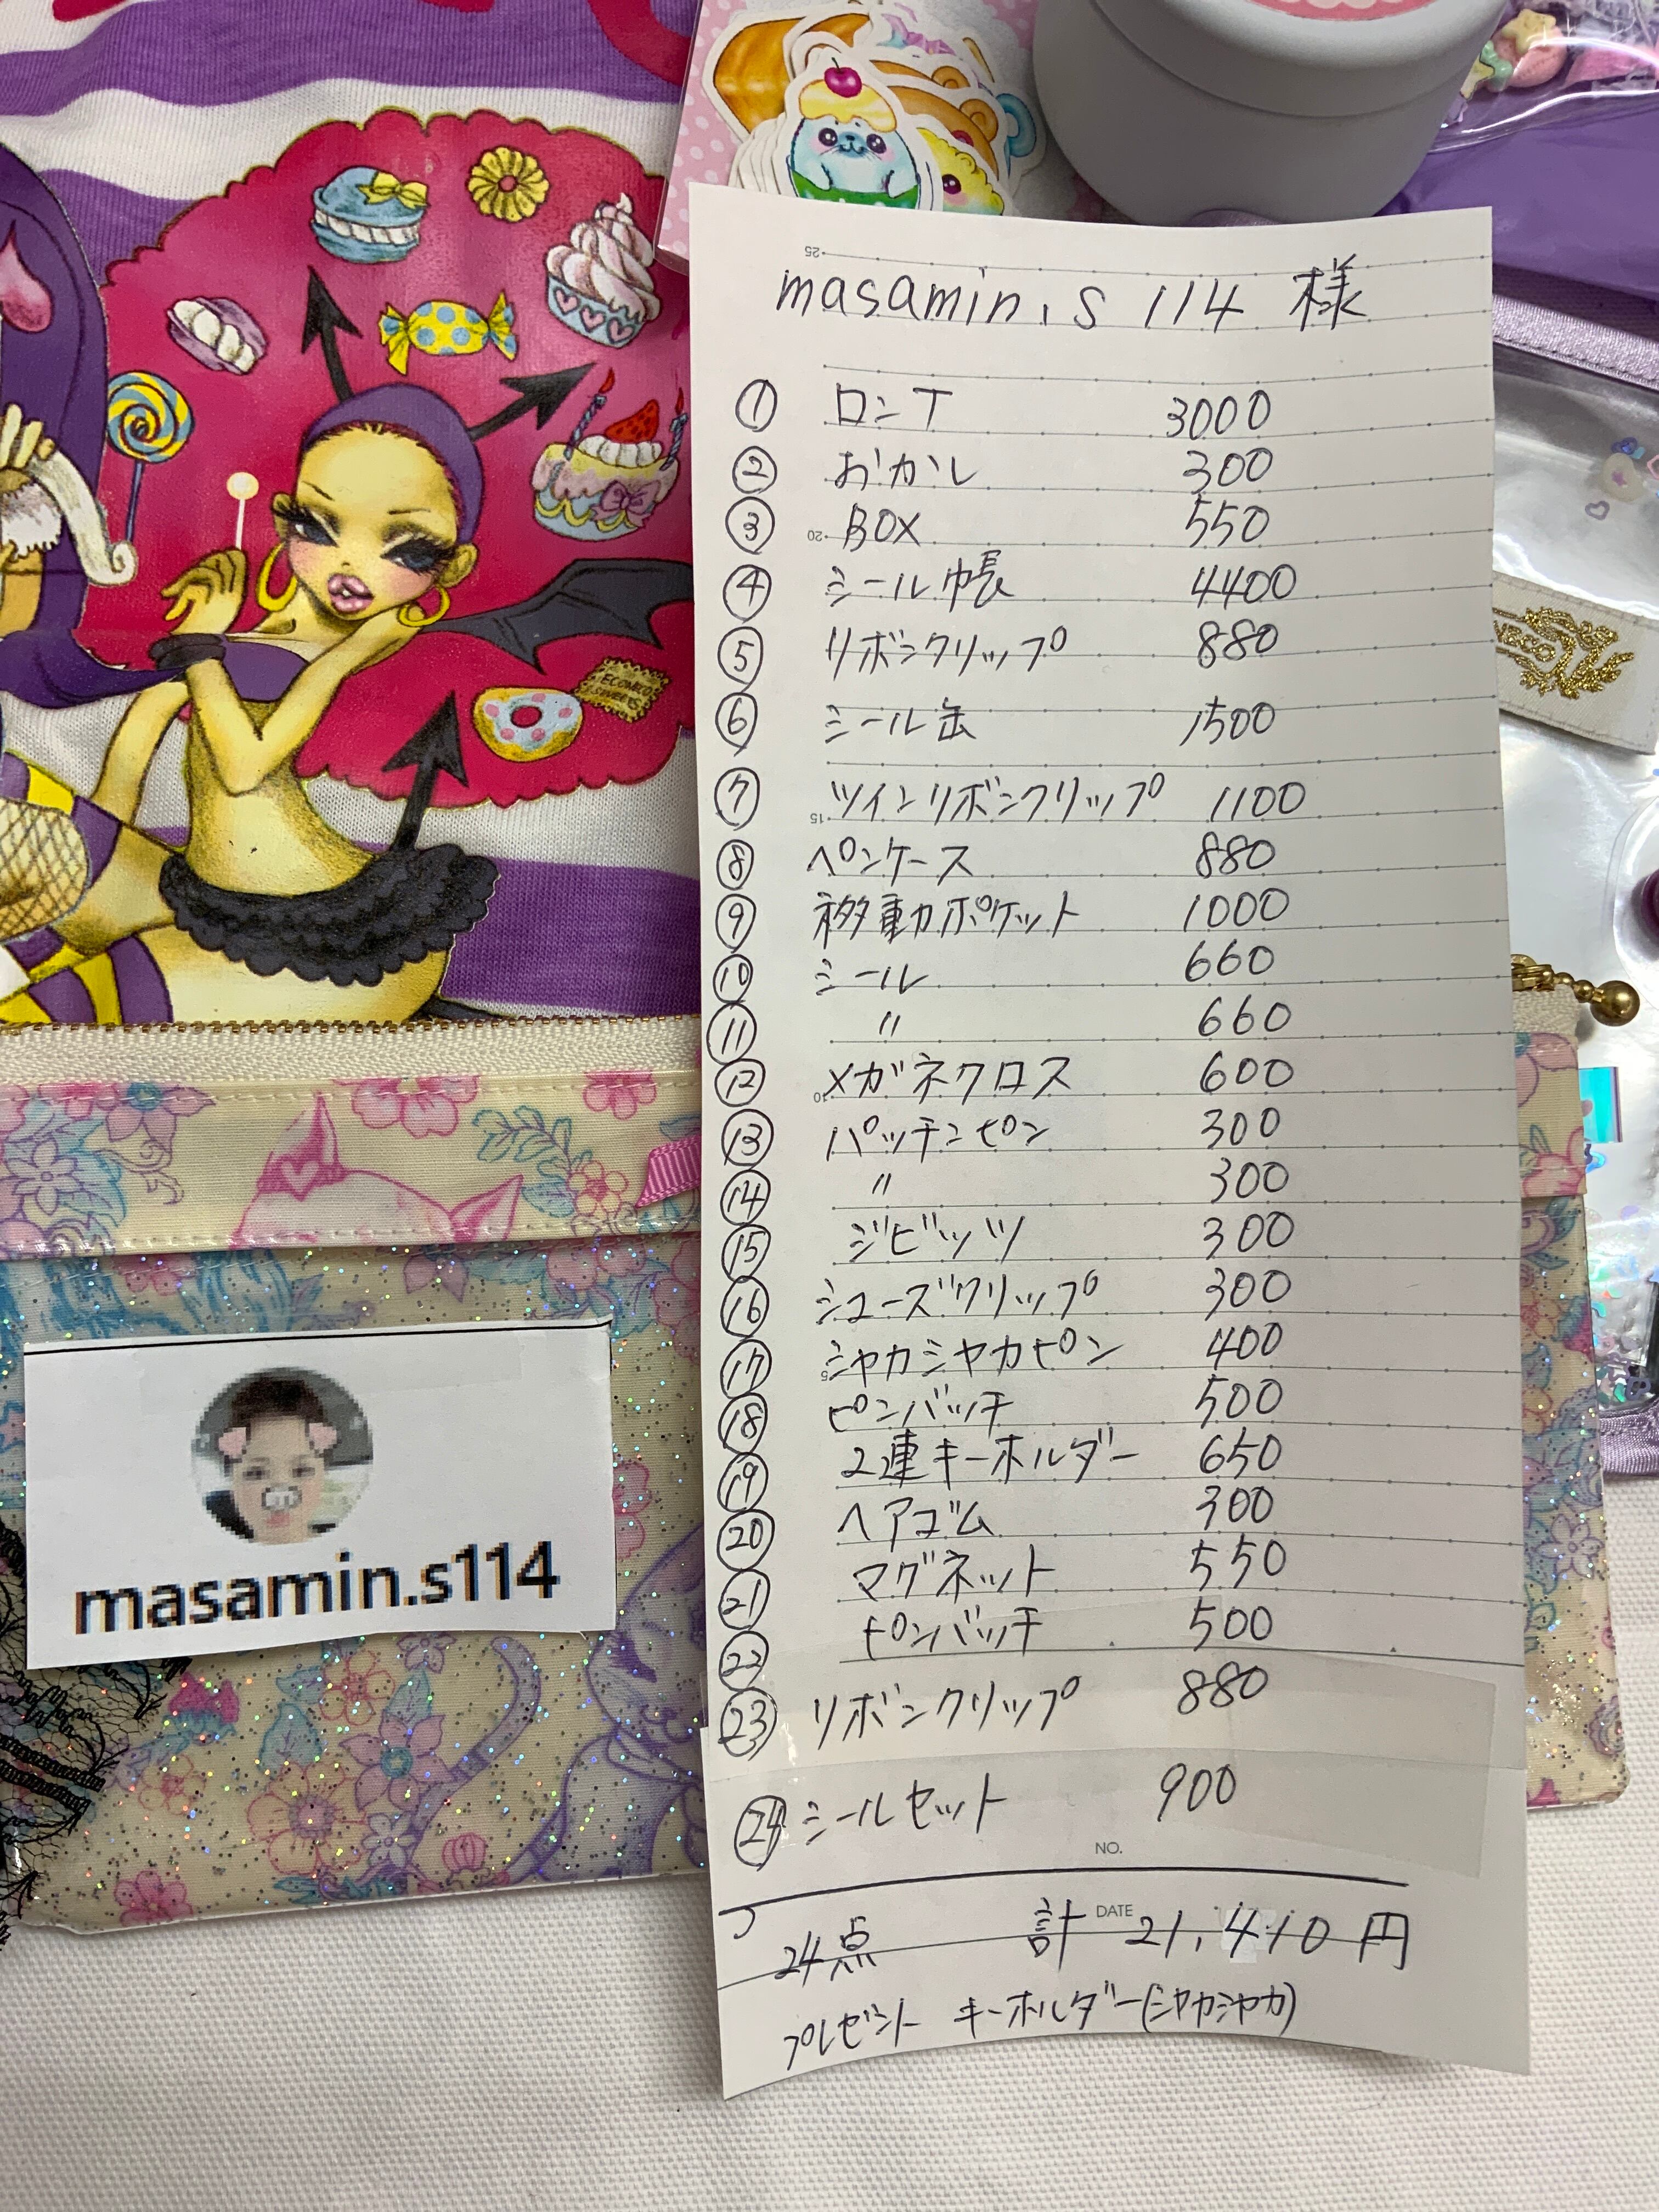 masamin.s 114 様
① ロンT 3000
② おかし 300
③ BOX 550
④ シール帳 4400
⑤ リボンクリップ 880
⑥ シール缶 1500
⑦ ツインリボンクリップ 1100
⑧ ペンケース 880
⑨ 移動ポケット 1000
⑩ シール 660
⑪ 〃 660
⑫ メガネクロス 600
⑬ パッチンピン 300
⑭ 〃 300
⑮ ジビッツ 300
⑯ シューズクリップ 300
⑰ シャカシャカピン 400
⑱ ピンバッチ 500
⑲ 2連キーホルダー 650
⑳ ヘアゴム 300
㉑ マグネット 550
㉒ ピンバッチ 500
㉓ リボンクリップ 880
㉔ シールセット 900
NO.
DATE
24点 計 21,410円
プレゼント キーホルダー(シャカシャカ)
masamin.s114
25
20
15
10
5
ECONECO
SWEETS